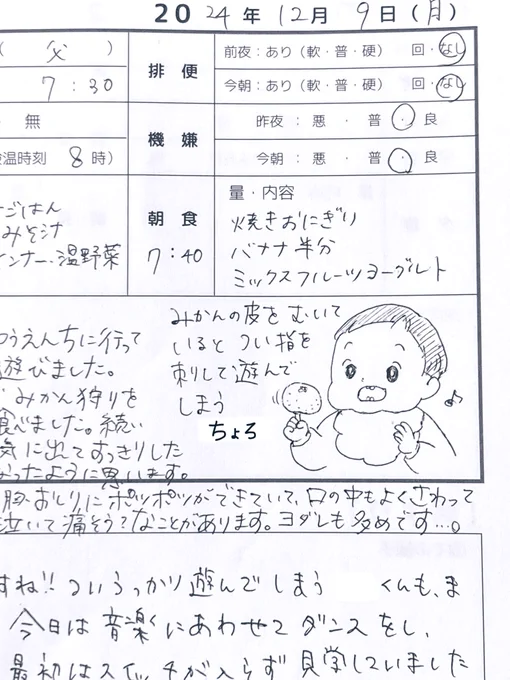 2024年12月9日(月)
(父)
排便
前夜：あり（軟・普・硬）　回・なし
7：30
今朝：あり（軟・普・硬）　回・なし
・無
機嫌
昨夜：悪・普・良
検温時刻 8時）
今朝：悪・普・良
ごはん
みそ汁
インナー、温野菜
朝食
7：40
量・内容
焼きおにぎり
バナナ半分
ミックスフルーツヨーグルト
うえんちに行って
遊びました。
みかん狩りを
食べました。続い
気に出てすっきりした
なったように思います。
みかんの皮をむいて
いると つい指を
刺りして遊んで
しまう
ちょろ
おしりにポツポツができていて、口の中もよくさわって
泣いて痛そう？なことがあります。ヨダレも多めです…。
すね!! ついうっかり遊んでしまう　くんも、ま
今日は音楽にあわせてダンスをし、
最初はスイッチが入らず見学していました